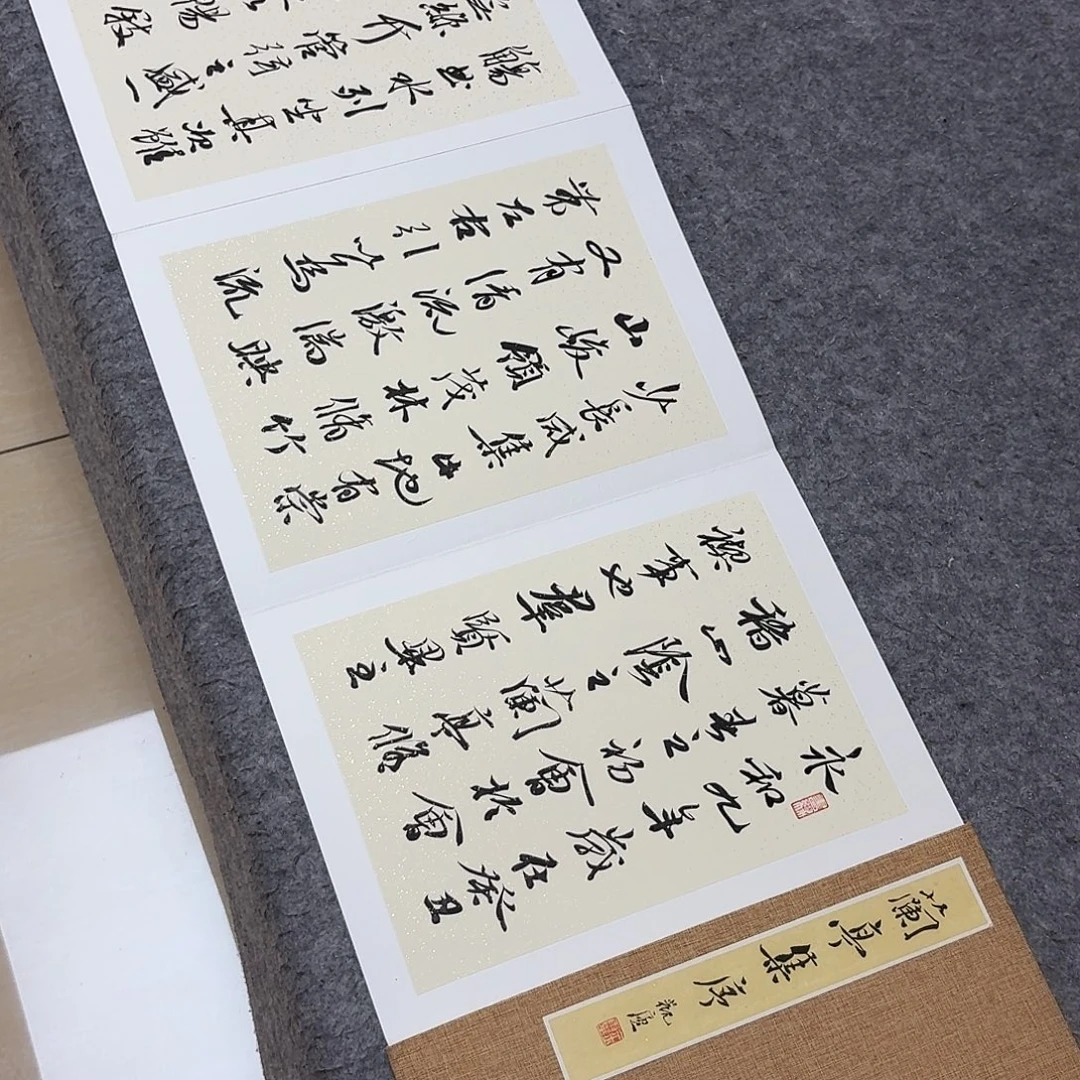 蘭亭集序
永和九年歲在癸丑
暮春之初會於會
稽山陰之蘭亭修
禊事也羣賢畢至
少長咸集此地有崇
山峻領茂林脩竹
又有清流激湍映
帶左右引以為流
觴曲水列坐其次雖
絲竹管弦之盛一
暢敘